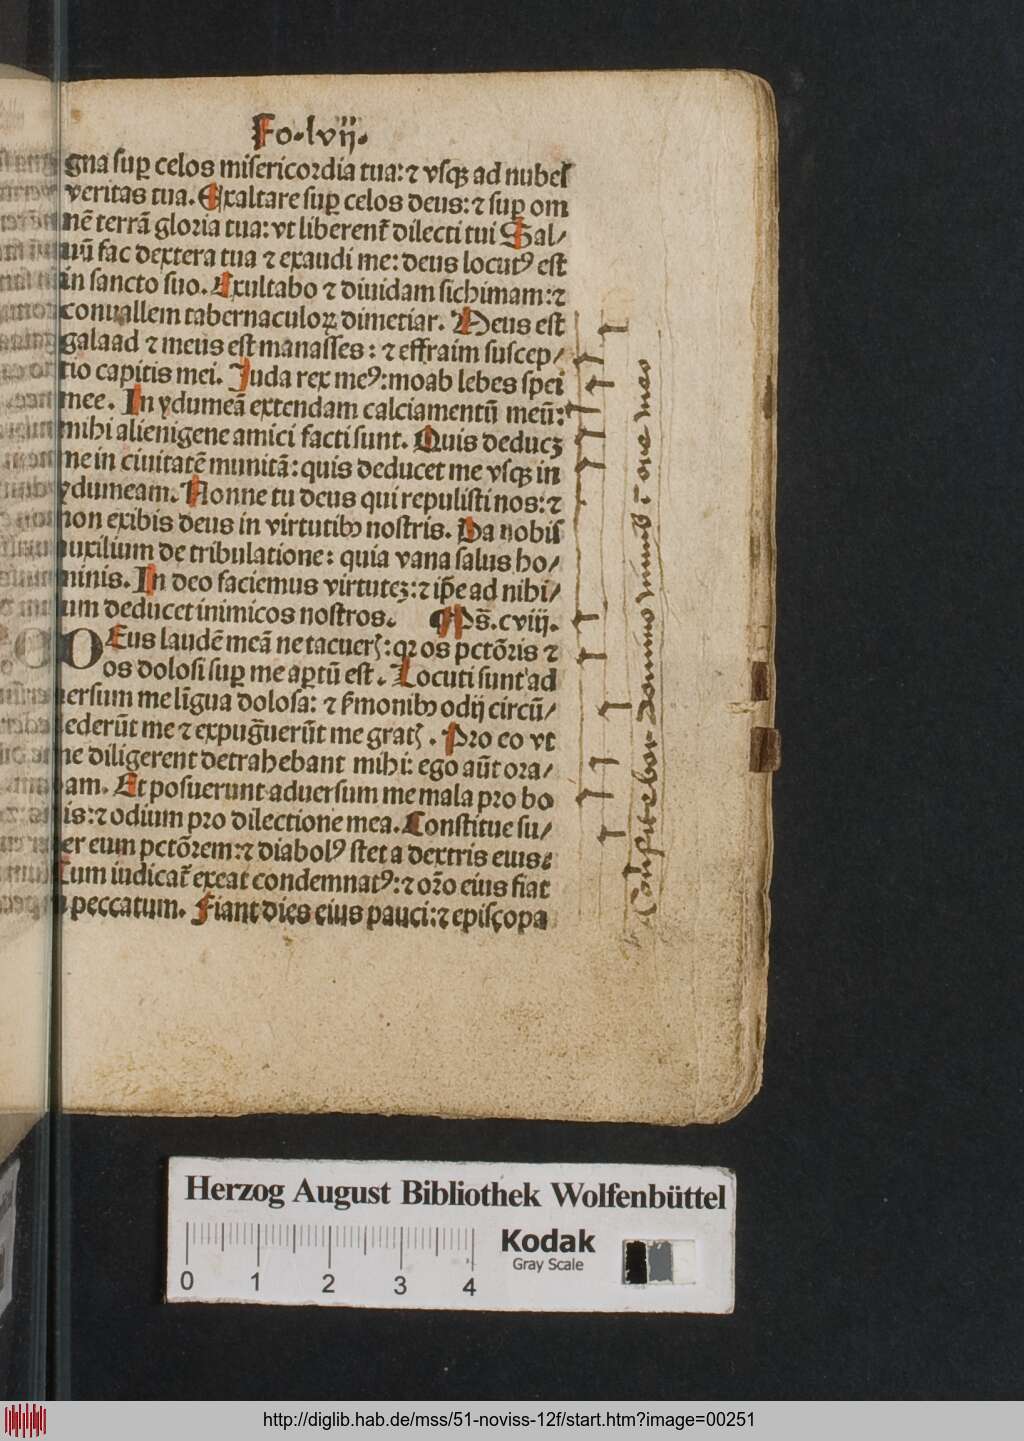 Fo.lvij.
gna suꝑ celos misericordia tua: ⁊ vsqꝫ ad nubes
veritas tua. Exaltare suꝑ celos deus: ⁊ suꝑ om
nē terrā gloria tua: vt liberent᷑ dilecti tui Sal/
uū fac dextera tua ⁊ exaudi me: deus locutꝰ est
in sancto suo. Exultabo ⁊ diuidam sichimam: ⁊
conuallem tabernaculoꝝ dimetiar. Meus est
galaad ⁊ meus est manasses: ⁊ effraim suscep/
tio capitis mei. Juda rex meꝰ: moab lebes spei
mee. In ydumeā extendam calciamentū meū:
mihi alienigene amici facti sunt. Quis deducꝫ
me in ciuitatē munitā: quis deducet me vsqꝫ in
ydumeam. Nonne tu deus qui repulisti nos: ⁊
non exibis deus in virtutibꝰ nostris. Da nobis
uxilium de tribulatione: quia vana salus ho/
minis. In deo faciemus virtuteꝫ: ⁊ ip̄e ad nihi/
um deducet inimicos nostros. Ps̄. cviij.
DEus laudē meā ne tacuerꝭ: qꝛ os pctōris ⁊
os dolosi suꝑ me aꝑtū est. Locuti sunt ad
uersum me līgua dolosa: ⁊ ẜmonibꝰ odij circū/
ederūt me ⁊ expug̃uerūt me gratꝭ. Pro eo vt
me diligerent detrahebant mihi: ego aūt ora/
bam. Et posuerunt aduersum me mala pro bo
is: ⁊ odium pro dilectione mea. Constitue su/
per eum pctōrem: ⁊ diabolꝰ stet a dextris eius.
Cum iudicat᷑ exeat condemnatꝰ: ⁊ or̄o eius fiat
peccatum. Fiant dies eius pauci: ⁊ episcopa
Confitebor domino nimis ī ore meo
Herzog August Bibliothek Wolfenbüttel
0 1 2 3 4
Kodak
Gray Scale
http://diglib.hab.de/mss/51-noviss-12f/start.htm?image=00251